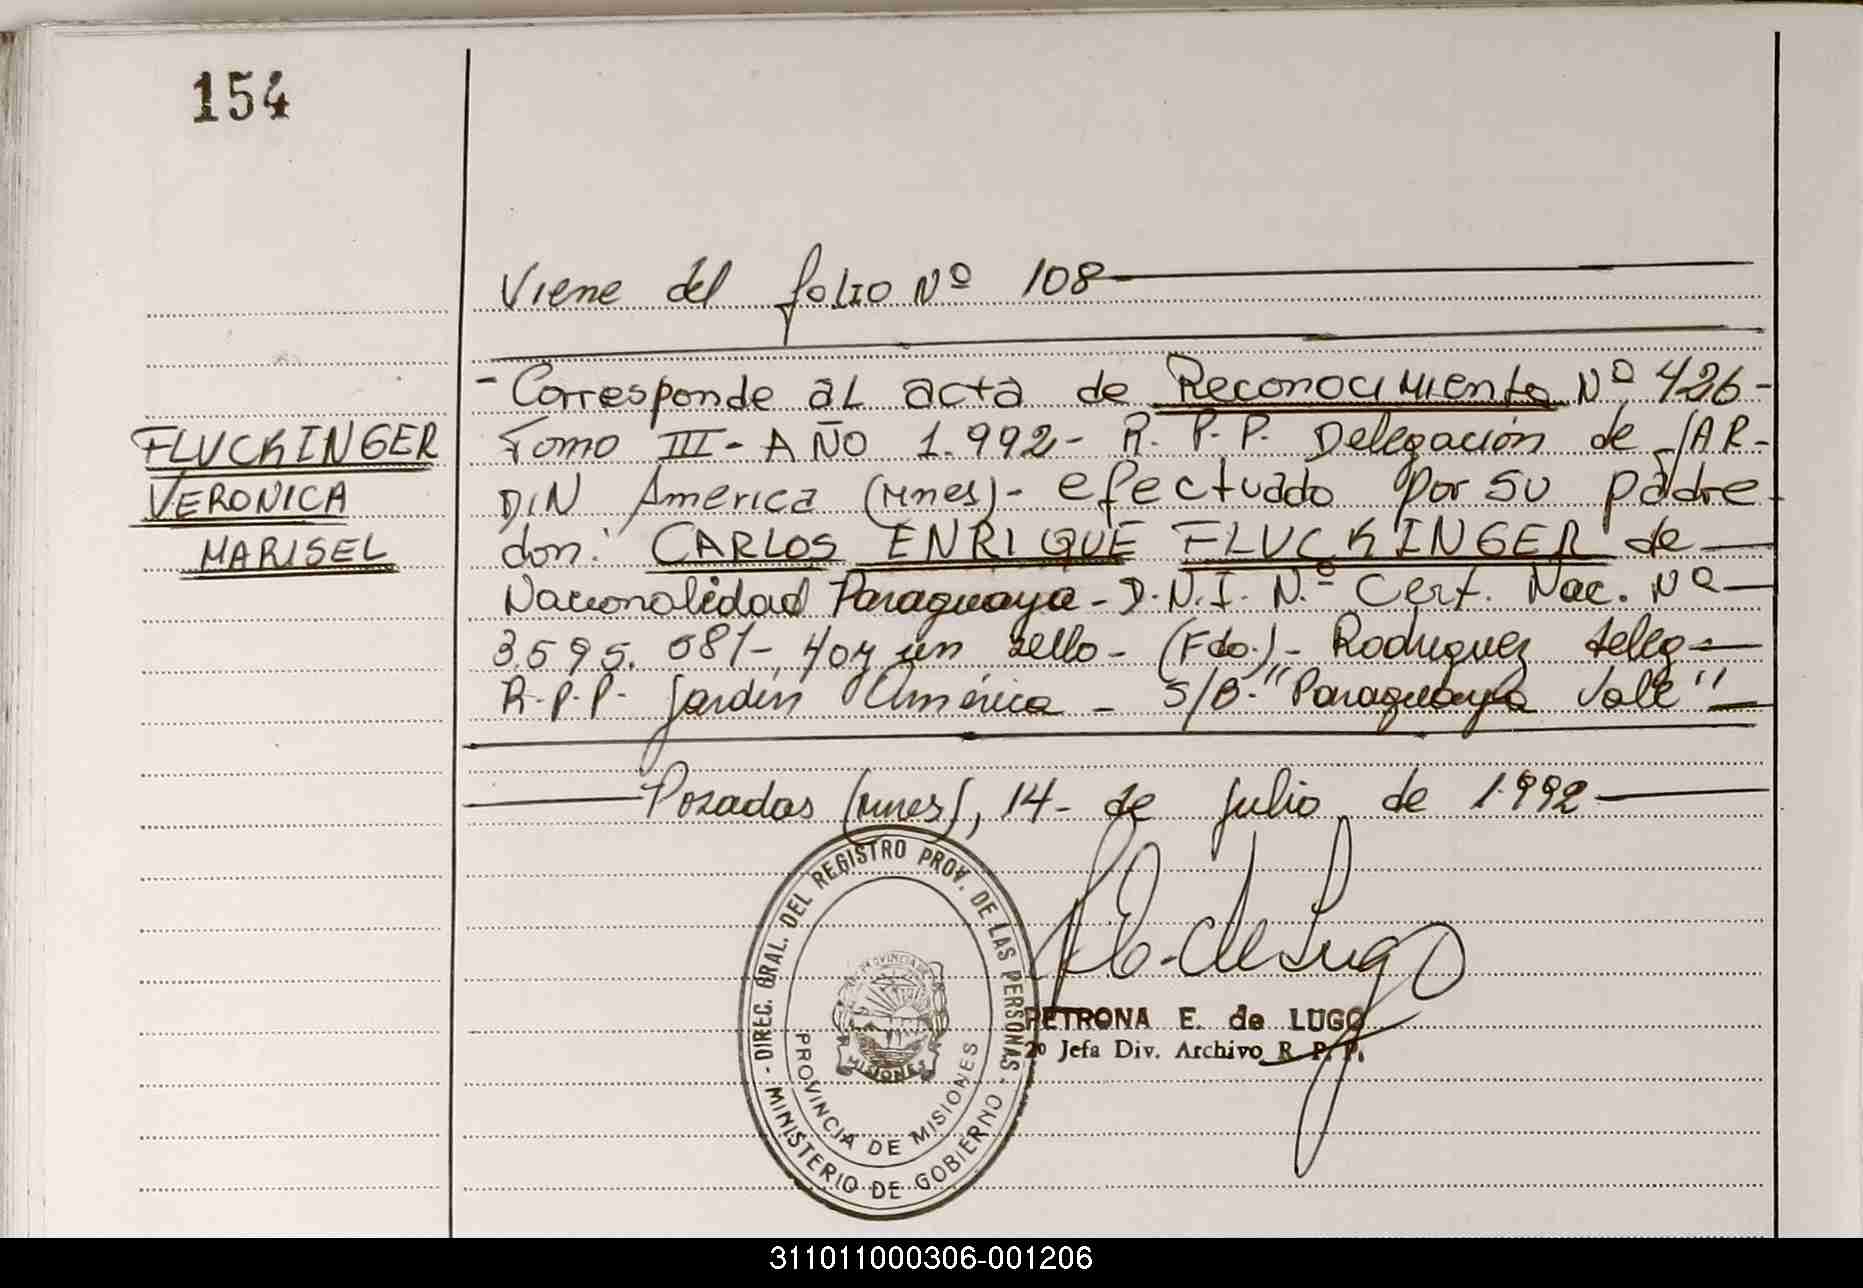 154
Viene del folio Nº 108
- Corresponde al acta de Reconocimiento Nº 426-
FLUCKINGER
VERONICA
MARISEL
Tomo III - AÑO 1.992- R. P. P. Delegación de JAR-
DIN America (Mnes)- efectuado por su padre
don: CARLOS ENRIQUE FLUCKINGER de
Nacionalidad Paraguaya - D.N.I. N.º Cert. Nac. Nº
3.595.081-, hay un sello - (Fdo.)- Rodriguez deleg-
R-P-P- Jardin América - S/B- "Paraguaya Vale"
Posadas (Mnes), 14- de julio de 1.992
DIREC. GRAL. DEL REGISTRO PROV. DE LAS PERSONAS - MINISTERIO DE GOBIERNO -
PROVINCIA DE MISIONES
MISIONES
de Lugo
PETRONA E. de LUGO
2º Jefa Div. Archivo R. P. P.
311011000306-001206